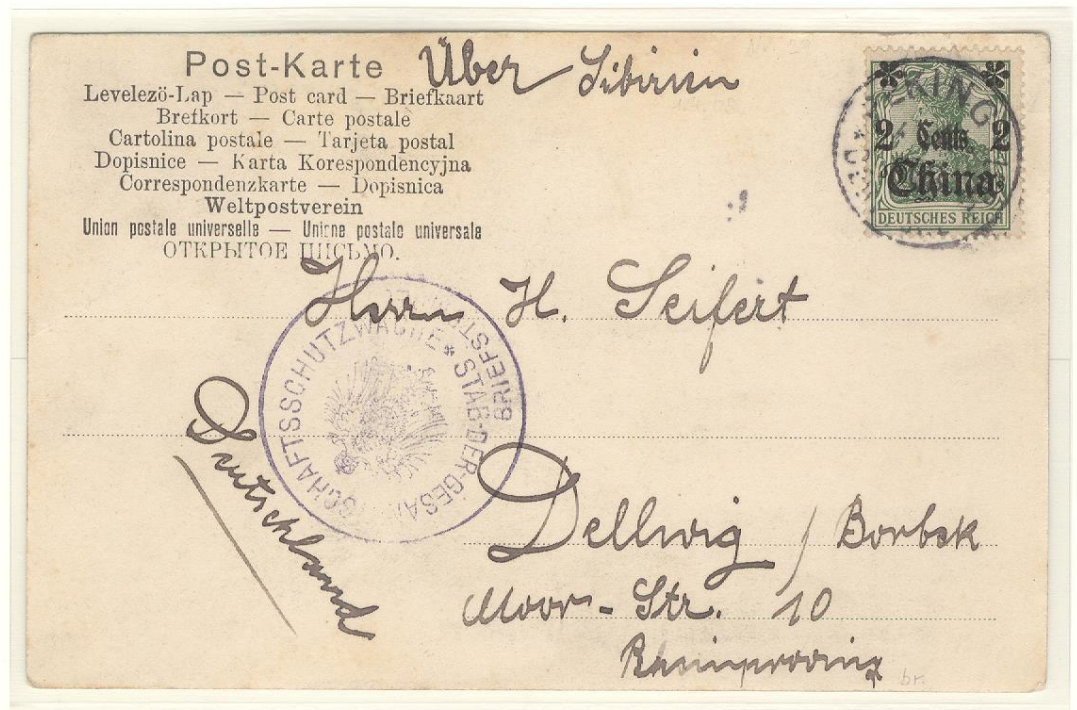 Post-Karte
Über Sibirien
Levelezö-Lap — Post card — Briefkaart
Brefkort — Carte postale
Cartolina postale — Tarjeta postal
Dopisnice — Karta Korespondencyjna
Correspondenzkarte — Dopisnica
Weltpostverein
Union postale universelle — Unione postale universale
ОТКРЫТОЕ ПИСЬМО.
PEKING
2 Cents 2
China
DEUTSCHES REICH
Herrn H. Seifert
BRIEFST
STAB-DER-GESANDTSCHAFTSSCHUTZWACHE *
Deutschland
Dellwig / Borbek
Moor-Str. 10
Rheinprovinz
br.